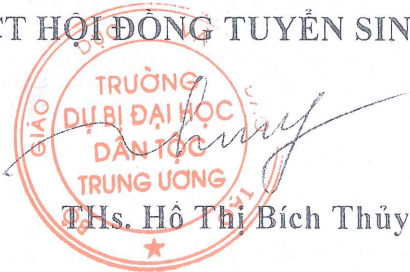 CT HỘI ĐỒNG TUYỂN SIN
GIÁO DỤC
TRƯỜNG
DỰ BỊ ĐẠI HỌC
DÂN TỘC
TRUNG ƯƠNG
THs. Hồ Thị Bích Thủy